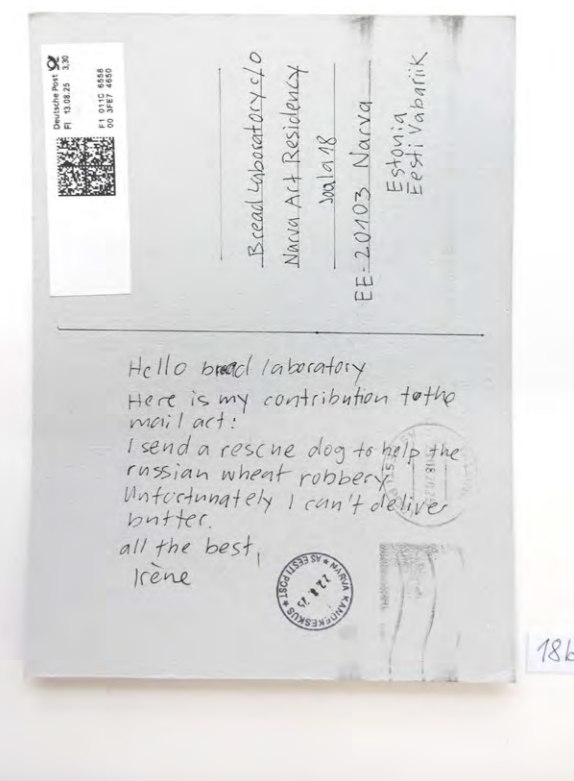 Deutsche Post
FI 13.08.25 3,30
F1 011C 6556
00 3FE7 4650
Bread Laboratory c/o
Narva Art Residency
Joala 18
EE-20103 Narva
Estonia
Eesti Vabariik
Hello bread laboratory
Here is my contribution to the
mail act:
I send a rescue dog to help the
russian wheat robbery
Unfortunately I can't deliver
butter.
all the best,
Irène
NARVA KANDEKESKUS ★ AS EESTI POST ★
22.8.25
18b